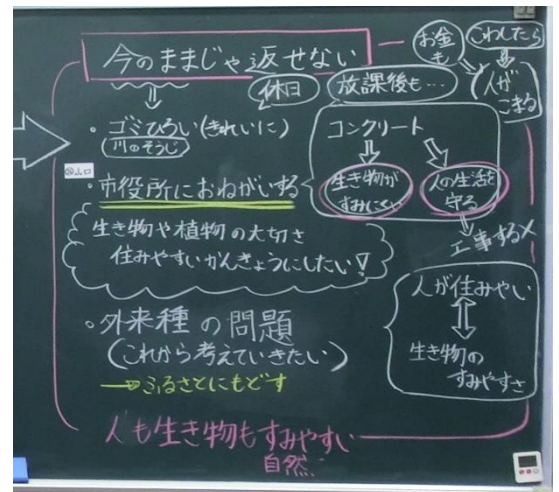 今のままじゃ返せない
お金も
こわしたら
人がこまる
休日
放課後も…
・ゴミひろい(きれいに)
川のそうじ
山口
・市役所におねがいする
コンクリート
生き物がすみにくい
人の生活を守る
工事する×
生き物や植物の大切さ
住みやすいかんきょうにしたい!
人が住みやい
生き物のすみやすさ
・外来種の問題
(これから考えていきたい)
→ふるさとにもどす
人も生き物もすみやすい
自然